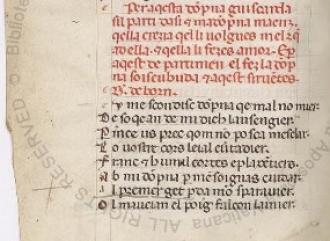 Per aquesta dõpna guiscarda
si parti dasi &amp; ma dõpna maenz.
qella creza qel li uolgues mel qe
ro ella. &amp; qella li fezes amor. Ep
aqest departimen el fez la dõp
na soiseubuda. &amp; aqest siruẽtes
B. de born.
y me scondisc dõpna qe mal no mier.
De so qe an de mi dich lausengier.
P mce us prec qom no posca meselar.
Lo uostre cors leial eu tadier.
Franc &amp; humil cortes e plazẽtiers.
Ab mi dõpna p mesoignas cutar.
Al premer get pda mõ sparauier.
Ol maucian el poig falcon lainier.
© Biblioteca Apo
Vaticana ALL RIGHTS RESERVED